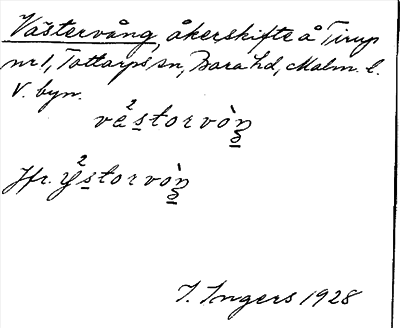 Västervång, åkerskifte å Tirup
nr 1, Tottarps sn, Bara hd, Malm. l.
V. byn.
vè²storvòn̬
Jfr. ý²storvòn̬
I. Ingers 1928